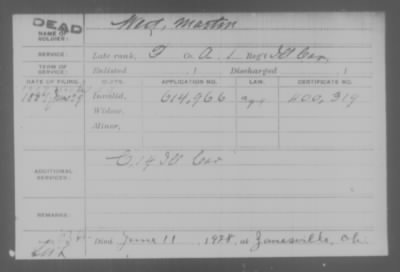 DEAD
NAME OF SOLDIER:
Martin
SERVICE:
Late rank, Co. A, 1 Reg't Ill Cav,
TERM OF SERVICE:
Enlisted , 1 Discharged , 1
DATE OF FILING. CLASS. APPLICATION NO. CERTIFICATE NO.
1887 Invalid, 614,966 400,319
Widow,
Minor,
ADDITIONAL SERVICES:
C. 14 Ill Cav
REMARKS:
Died June 11 1928, at Zanesville, Oh.